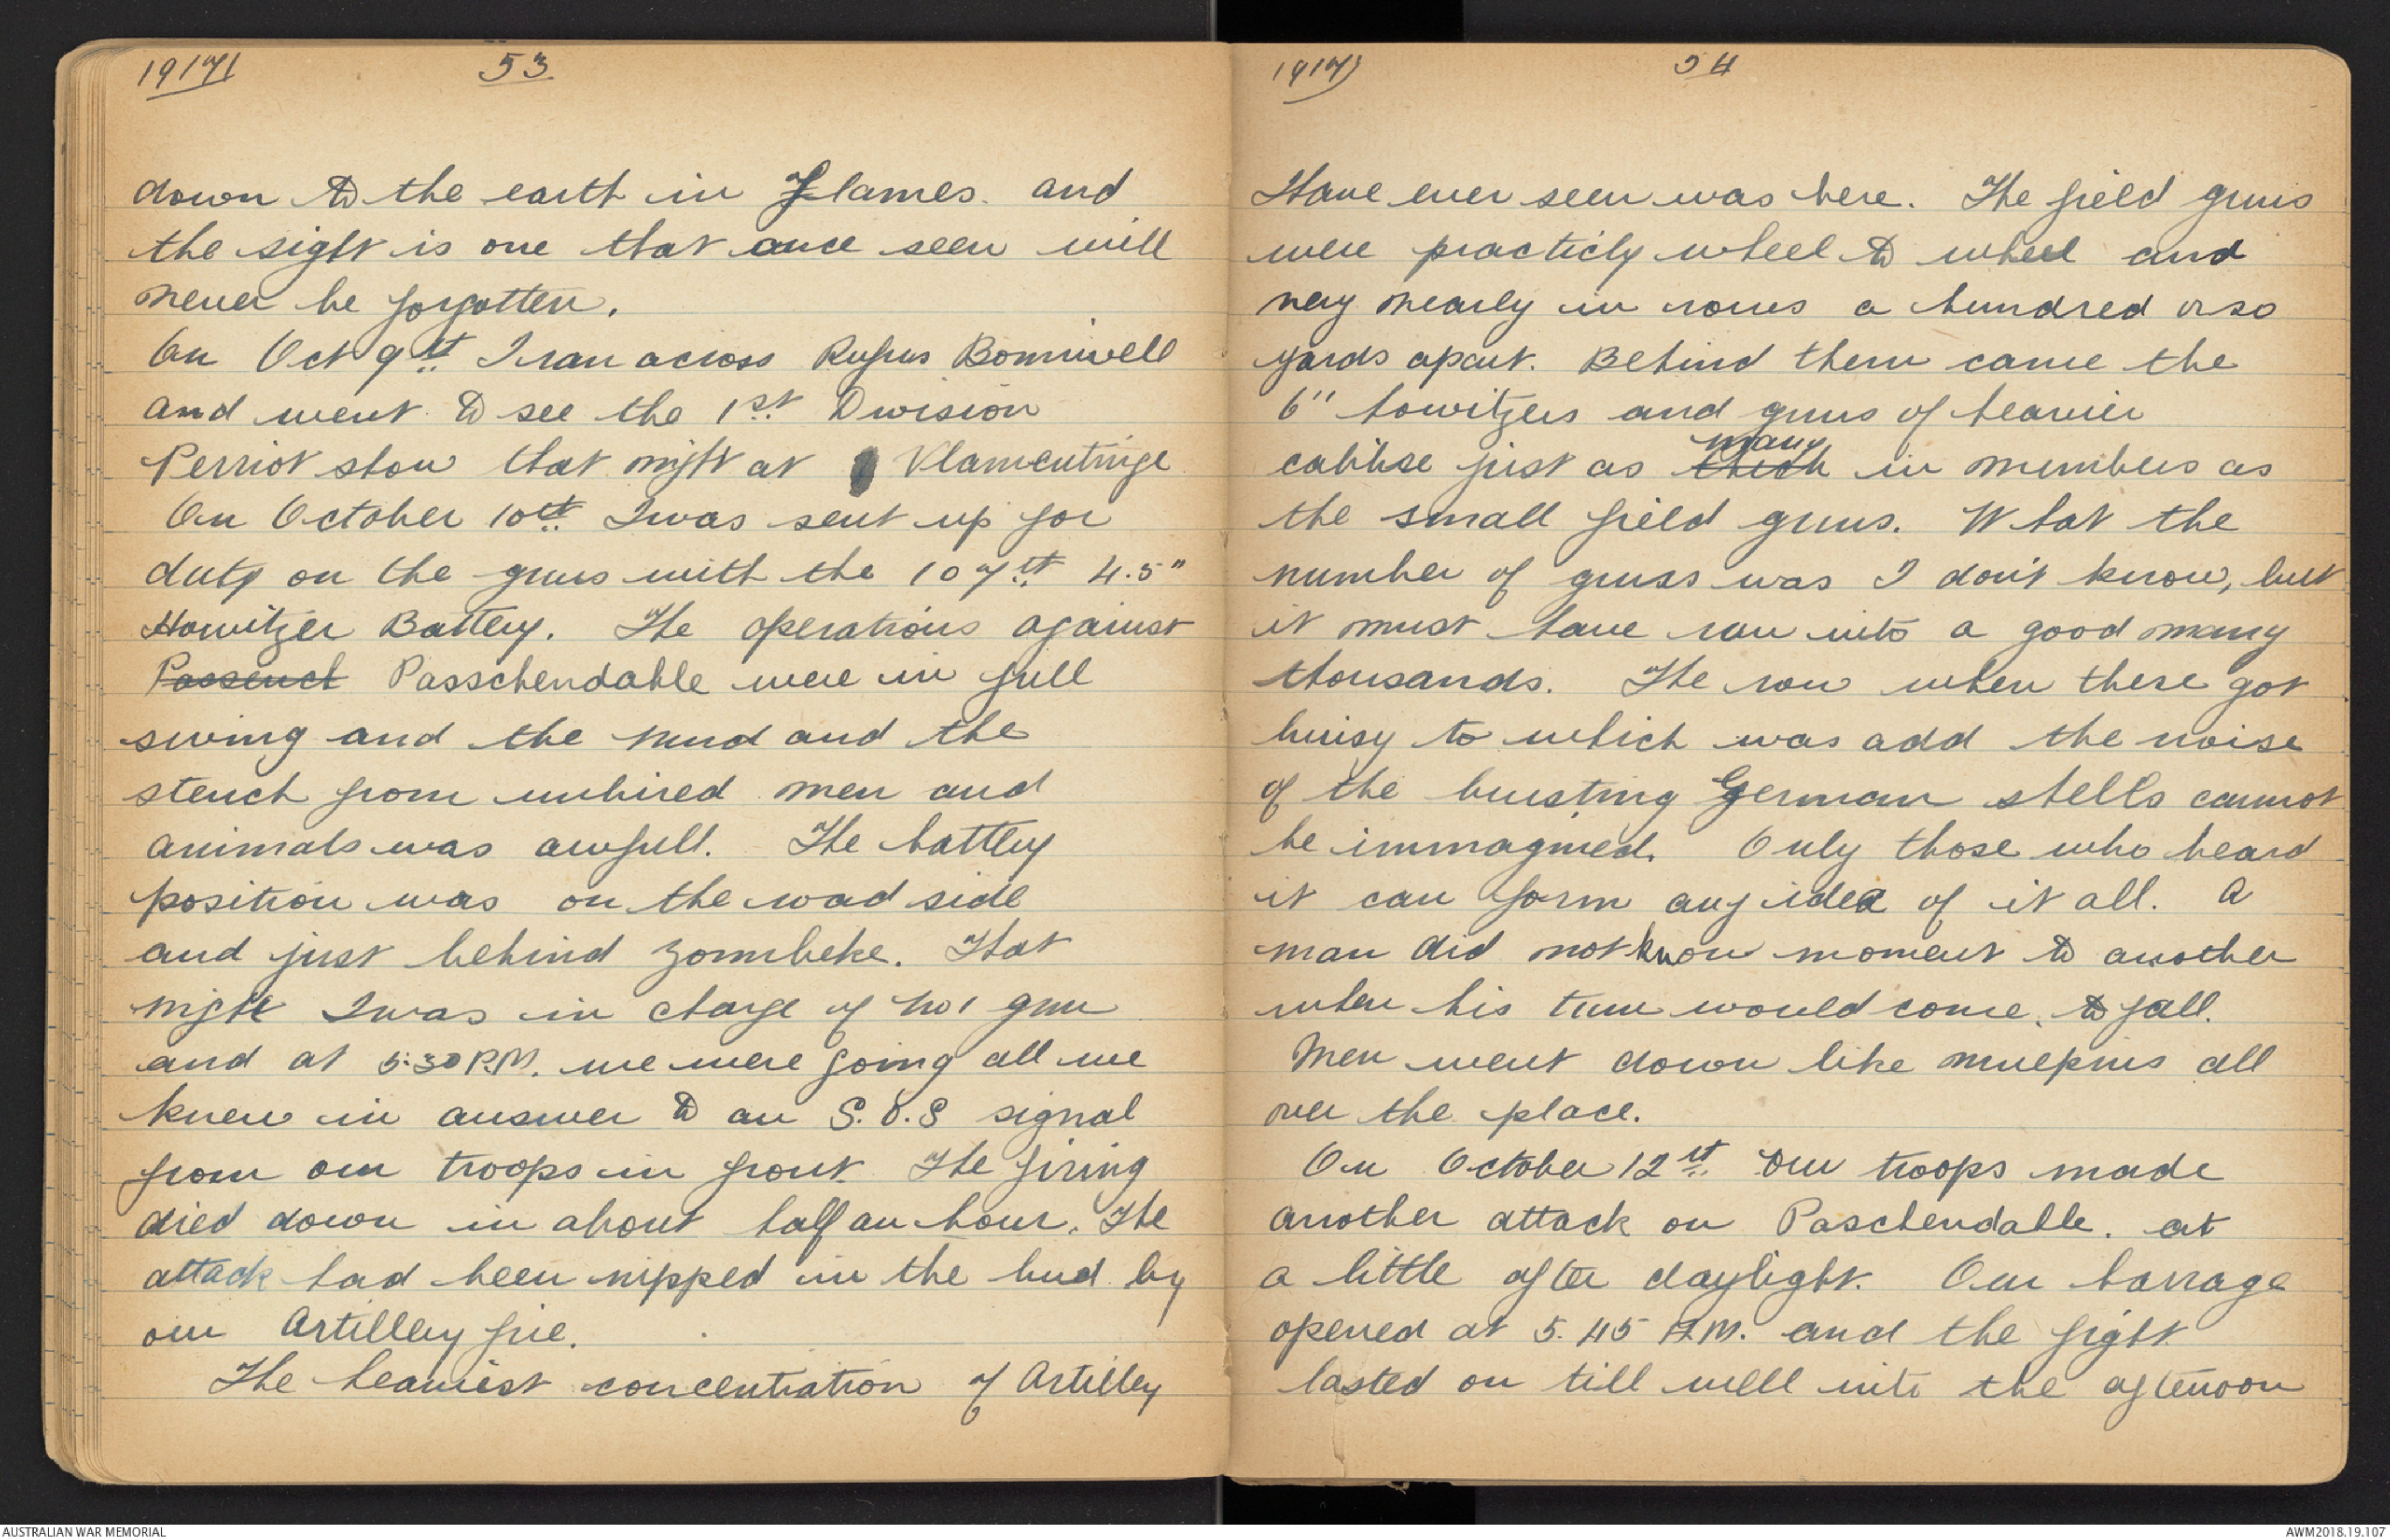 1917/
53
down to the earth in flames. and
the sight is one that once seen will
never be forgotten.
On Oct 9th I ran across Rufus Bonniwell
and went to see the 1st Division
Perriot show that night at Vlamentinge
On October 10th I was sent up for
duty on the guns with the 107th 4.5"
Howitzer Battery. The operations against
Passenct Passchendahle were in full
swing and the mud and the
stench from unbired men and
animals was awfull. The battley
position was on the road side
and just behind Zonnbeke. That
night I was in charge of No 1 gun
and at 5:30 P.M. we were going all we
knew in answer to an S.O.S signal
from our troops in front. The firing
died down in about half an hour. The
attack had been nipped in the bud by
our Artillery fire.
The heaviest concentration of Artilley
1917)
54
I have ever seen was here. The field guns
were practicly wheel to wheel and
very nearly in rows a hundred or so
yards apart. Behind them came the
6" howitzers and guns of heavier
many
calibse just as thich in numbers as
the small field guns. What the
number of guns was I don't know, but
it must have ran into a good many
thousands. The row when these got
buisy to which was add the noise
of the bursting German shells cannot
be immagined. Only those who heard
it can form any idea of it all. A
man did not know moment to another
when his turn would come. to fall.
Men went down like ninepins all
over the place.
On October 12th our troops made
another attack on Paschendalle. at
a little after daylight. Our barrage
opened at 5.45 A.M. and the fight
lasted on till well into the afternoon
AUSTRALIAN WAR MEMORIAL
AWM2018.19.107